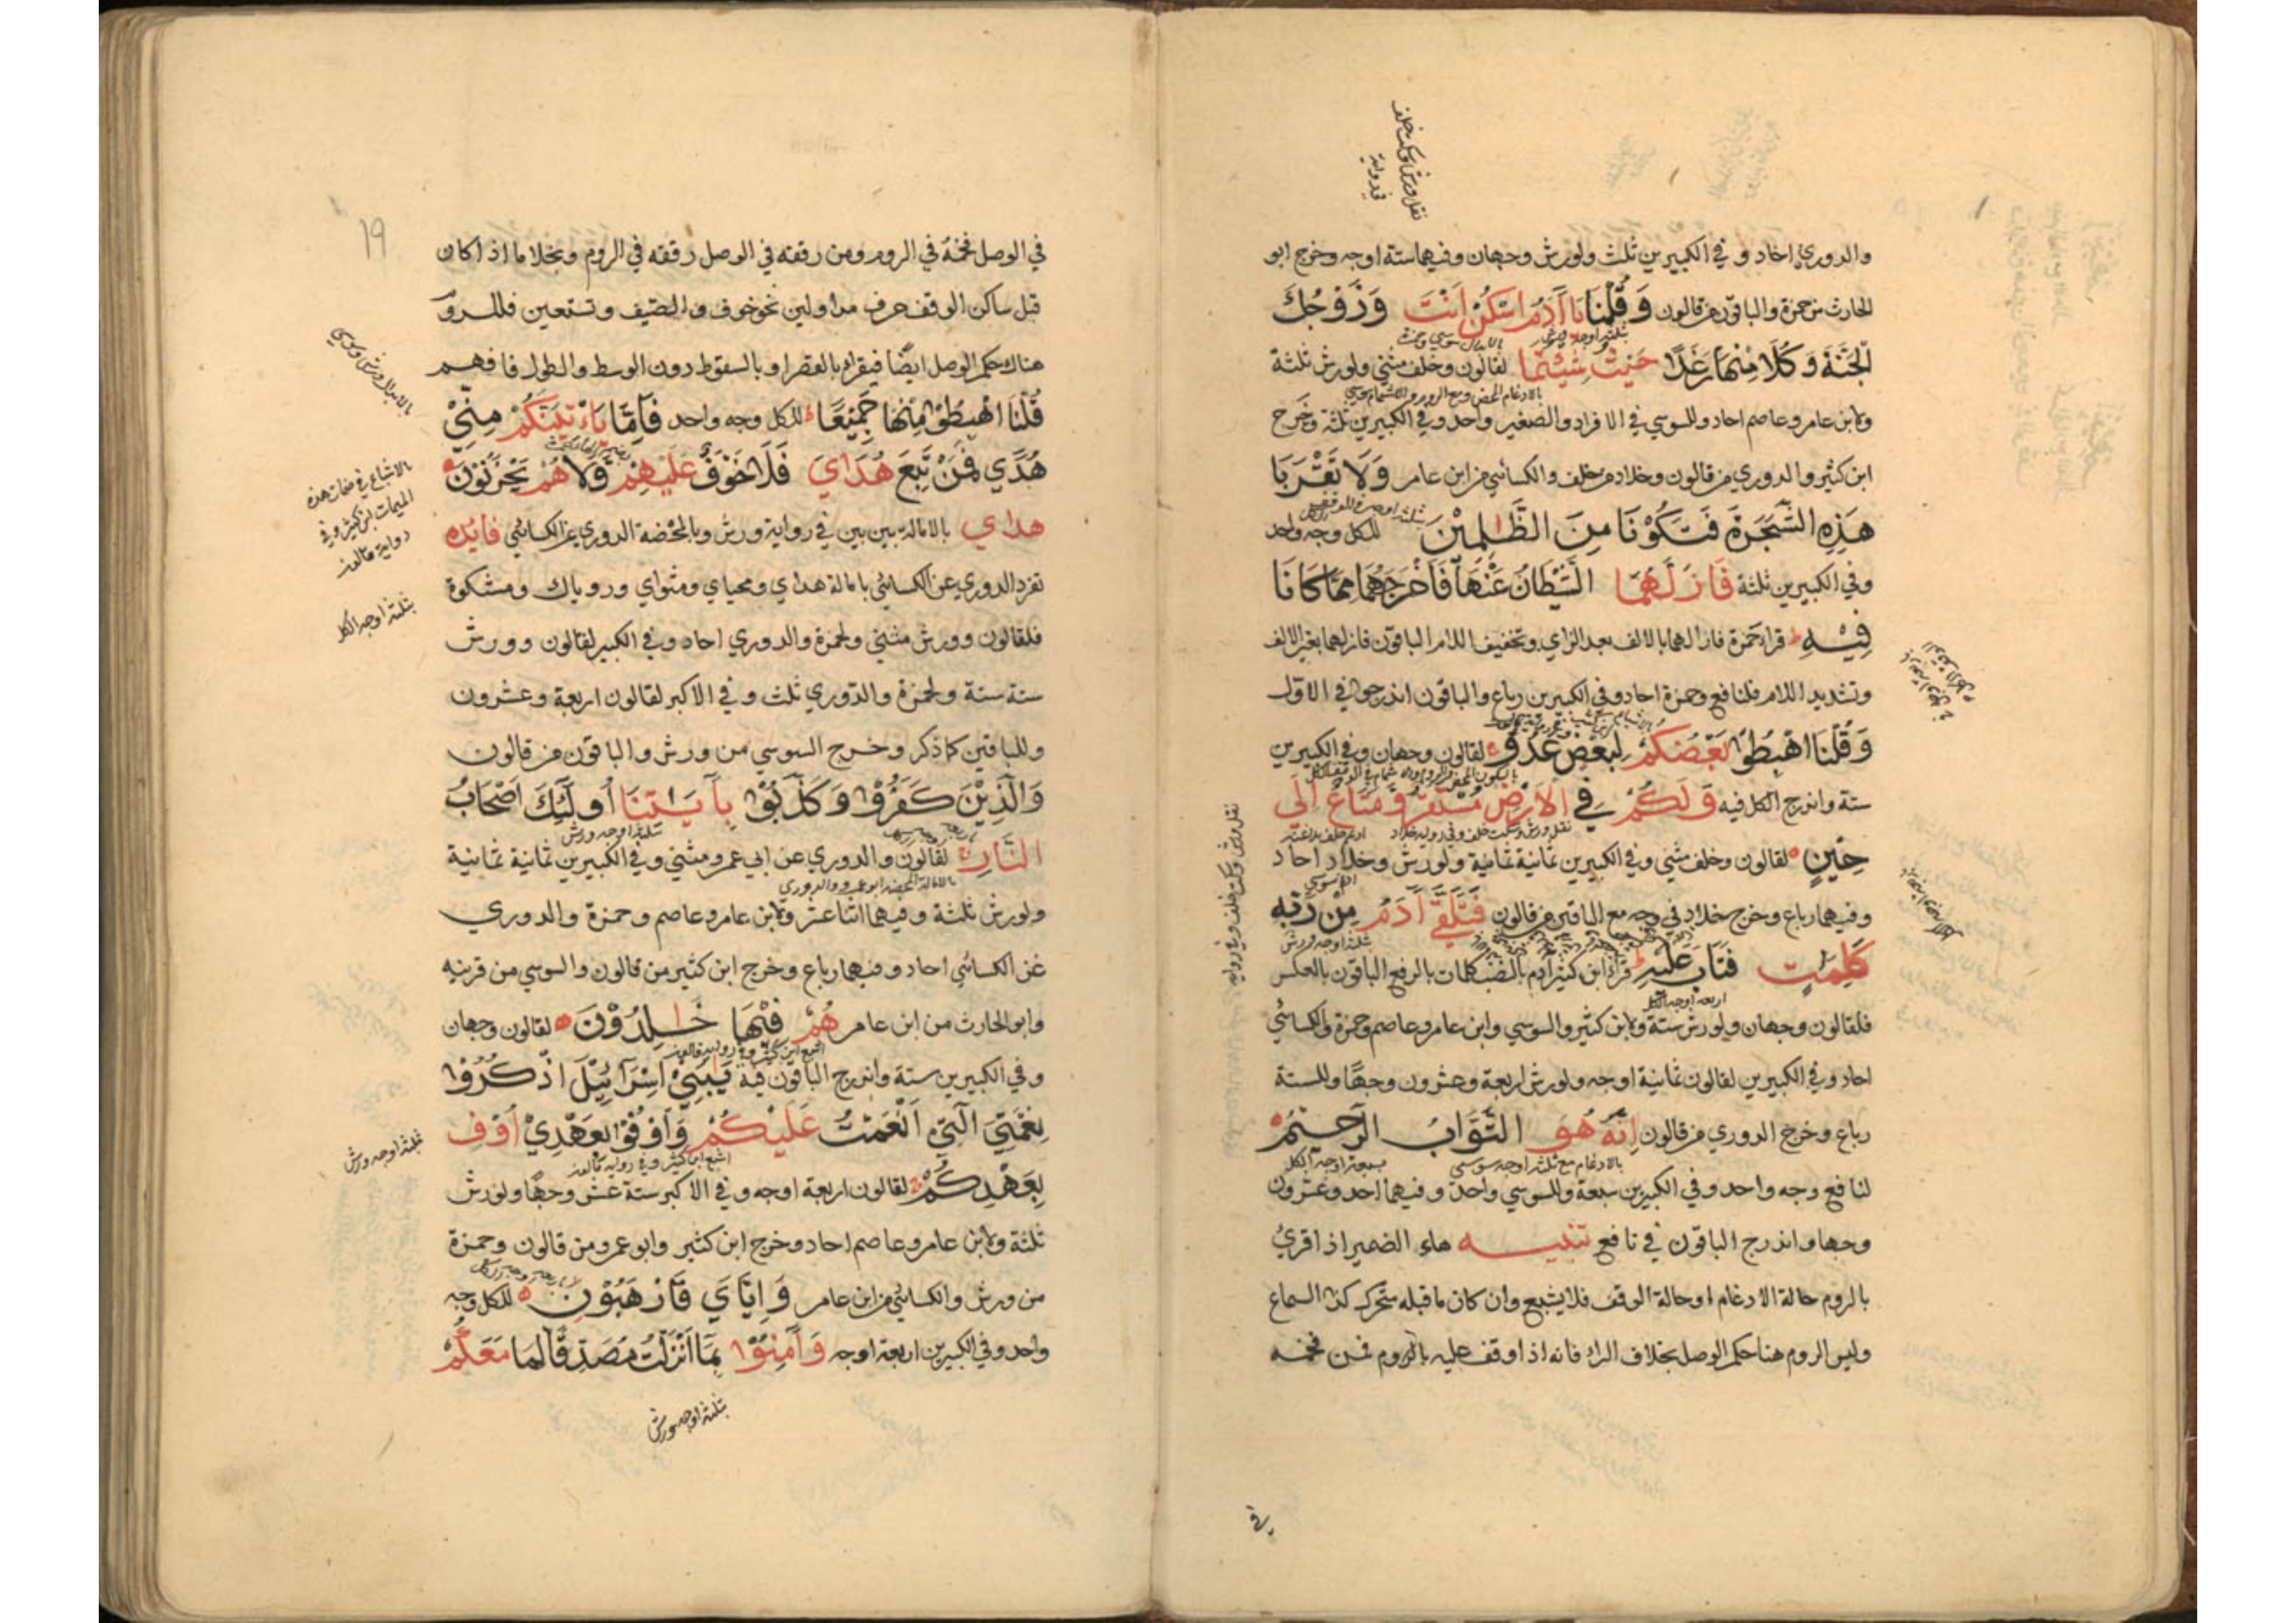 والدوري احاد و في الكبيرين ثلث ولورش وجهان وفيهما ستة اوجه وخرج ابو
الحارث من حمزة والباقون من قالون وَقُلْنَا يَا آدَمُ اسْكُنْ اَنْتَ وَزَوْجُكَ
الْجَنَّةَ وَكُلَا مِنْهَا رَغَدًا حَيْثُ شِئْتُمَا لقالون وخلف مثني ولورش ثلثة
ولابن عامر وعاصم احاد وللسوسي في الافراد والصغير واحد وفي الكبيرين ثلثة وخرج
ابن كثير والدوري من قالون وخلاد من خلف والكسائي من ابن عامر وَلَا تَقْرَبَا
هَذِهِ الشَّجَرَةَ فَتَكُوْنَا مِنَ الظَّلِمِيْنَ للكل وجه واحد
وفي الكبيرين ثلثة فَاَزَلَّهُمَا الشَّيْطَانُ عَنْهَا فَاَخْرَجَهُمَا مِمَّا كَانَا
فِيْهِ قراء حمزة فازالهما بالالف بعد الزاي وتخفيف اللام الباقون فازلهما بغير الالف
وتشديد اللام فلنافع وحمزة احاد وفي الكبيرين رباع والباقون اندرجوا في الاول
وَقُلْنَا اهْبِطُوْا بَعْضُكُمْ لِبَعْضٍ عَدُوٌّ لقالون وجهان وفي الكبيرين
ستة واندرج الكل فيه وَلَكُمْ فِي الْاَرْضِ مُسْتَقَرٌّ وَّمَتَاعٌ اِلَى
حِيْنٍ لقالون وخلف مثني وفي الكبيرين ثمانية ثمانية ولورش وخلاد احاد
وفيهما رباع وخرج خلاد في وجه مع الباقين من قالون فَتَلَقَّى آدَمُ مِنْ رَبِّهِ
كَلِمٰتٍ فَتَابَ عَلَيْهِ قراء ابن كثير آدم بالنصب كلمات بالرفع الباقون بالعكس
فلقالون وجهان ولورش ستة ولابن كثير والسوسي وابن عامر وعاصم وحمزة والكسائي
احاد وفي الكبيرين لقالون ثمانية اوجه ولورش اربعة وعشرون وجها وللستة
رباع وخرج الدوري من قالون اِنَّهُ هُوَ التَّوَّابُ الرَّحِيْمُ
لنافع وجه واحد وفي الكبيرين سبعة وللسوسي واحد وفيهما احد وعشرون
وجها واندرج الباقون في نافع تنبيه هاء الضمير اذا قرئ
بالروم حالة الادغام او حالة الوقف فلا يشبع وان كان ما قبله متحرك كذا السماع
وليس الروم هنا حكم الوصل بخلاف الراء فانه اذا وقف عليه بالروم فمن فخمه
في
19
في الوصل فخمه في الروم ومن رققه في الوصل رققه في الروم وبخلاما اذا كان
قبل ساكن الوقف حرف مد او لين نحو خوف والصيف ونستعين فللروم
هناك حكم الوصل ايضا فيقراء بالقصر او بالسقوط دون الوسط والطول فافهم
قُلْنَا اهْبِطُوْا مِنْهَا جَمِيْعًا للكل وجه واحد فَاِمَّا يَاْتِيَنَّكُمْ مِنِّيْ
هُدًى فَمَنْ تَبِعَ هُدَايَ فَلَا خَوْفٌ عَلَيْهِمْ وَلَا هُمْ يَحْزَنُوْنَ
هداي بالامالة بين بين في رواية ورش وبالمحضة الدوري عن الكسائي فايده
تفرد الدوري عن الكسائي بامالة هداي ومحياي ومثواي ورؤياك ومشكوة
فلقالون وورش مثني ولحمزة والدوري احاد وفي الكبير لقالون وورش
ستة ستة ولحمزة والدوري ثلث وفي الاكبر لقالون اربعة وعشرون
وللباقين كما ذكر وخرج السوسي من ورش والباقون من قالون
وَالَّذِيْنَ كَفَرُوْا وَكَذَّبُوْا بِآيٰتِنَا أُولٰئِكَ اَصْحَابُ
النَّارِ لقالون والدوري عن ابي عمرو مثني وفي الكبيرين ثمانية ثمانية
ولورش ثلثة وفيهما اثنا عشر ولابن عامر وعاصم وحمزة والدوري
عن الكسائي احاد وفيهما رباع وخرج ابن كثير من قالون والسوسي من قرينه
وابو الحارث من ابن عامر هُمْ فِيْهَا خٰلِدُوْنَ لقالون وجهان
وفي الكبيرين ستة واندرج الباقون فيه يٰبَنِيْ اِسْرَآئِيْلَ اذْكُرُوْا
نِعْمَتِيَ الَّتِيْ اَنْعَمْتُ عَلَيْكُمْ وَاَوْفُوْا بِعَهْدِيْ اُوْفِ
بِعَهْدِكُمْ لقالون اربعة اوجه وفي الاكبر ستة عشر وجها ولورش
ثلثة ولابن عامر وعاصم احاد وخرج ابن كثير وابو عمرو من قالون وحمزة
من ورش والكسائي من ابن عامر وَاِيَّايَ فَارْهَبُوْنِ للكل وجه
واحد وفي الكبيرين اربعة اوجه وَآمِنُوْا بِمَا اَنْزَلْتُ مُصَدِّقًا لِمَا مَعَكُمْ
بالاشباع في ضمات هذه
الميمات لابن كثير وفي
رواية قالون
بثلثة اوجه للكل
ثلثة اوجه ورش
بثلثة اوجه ورش